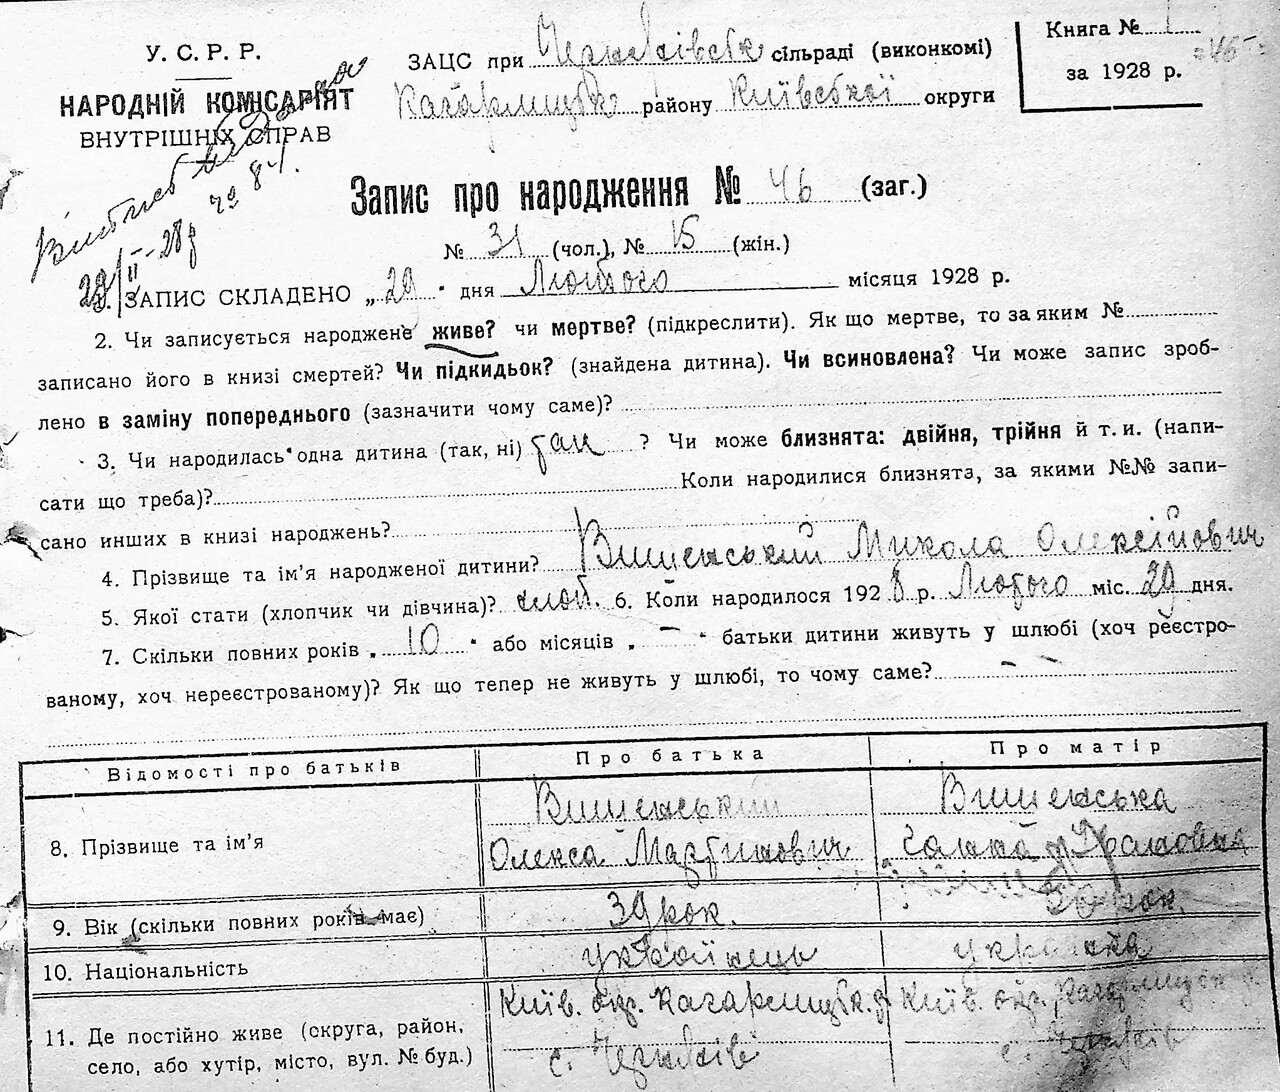 У.С.Р.Р.
НАРОДНІЙ КОМІСАРІЯТ
ВНУТРІШНІХ СПРАВ
ЗАЦС при Черняхівськ сільраді (виконкомі)
Кагарлицьк району Київської округи
Книга № 1
за 1928 р.
29/II-28 р № 84.
Запис про народження № 46 (заг.)
№ 31 (чол.), № 15 (жін.)
ЗАПИС СКЛАДЕНО „29" дня Лютого місяця 1928 р.
2. Чи записується народжене живе? чи мертве? (підкреслити). Як що мертве, то за яким №
записано його в книзі смертей? Чи підкидьок? (знайдена дитина). Чи всиновлена? Чи може запис зроб-
лено в заміну попереднього (зазначити чому саме)?
3. Чи народилась одна дитина (так, ні) так ? Чи може близнята: двійня, трійня й т. и. (напи-
сати що треба)? Коли народилися близнята, за якими №№ запи-
сано инших в книзі народжень?
4. Прізвище та ім'я народженої дитини? Вишенський Микола Олексійович
5. Якої стати (хлопчик чи дівчина)? хлоп. 6. Коли народилося 1928 р. Лютого міс. 29 дня.
7. Скільки повних років „10" або місяців „—" батьки дитини живуть у шлюбі (хоч реєстро-
ваному, хоч нереєстрованому)? Як що тепер не живуть у шлюбі, то чому саме? — —
Відомості про батьків Про батька Про матір
8. Прізвище та ім'я Вишенський Олекса Мартинович Вишенська
9. Вік (скільки повних років має) 39 рок. рок.
10. Національність українець українка
11. Де постійно живе (округа, район, Київ. окр. Кагарлицьк. р. Київ. окр. Кагарлицьк р.
село, або хутір, місто, вул. № буд.) с. Черняхів с. Черняхів